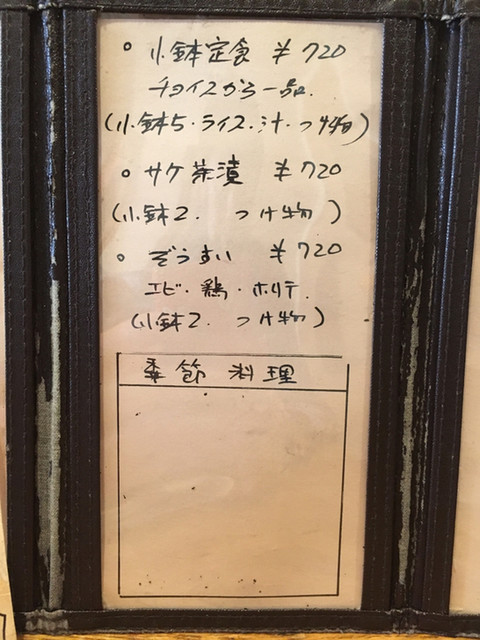 ○ 小鉢定食 ¥720
チョイスから一品.
(小鉢5・ライス・汁・つけ物)
○ サケ茶漬 ¥720
(小鉢2. つけ物)
○ ぞうすい ¥720
エビ・鶏・ホタテ.
(小鉢2. つけ物)
季節料理